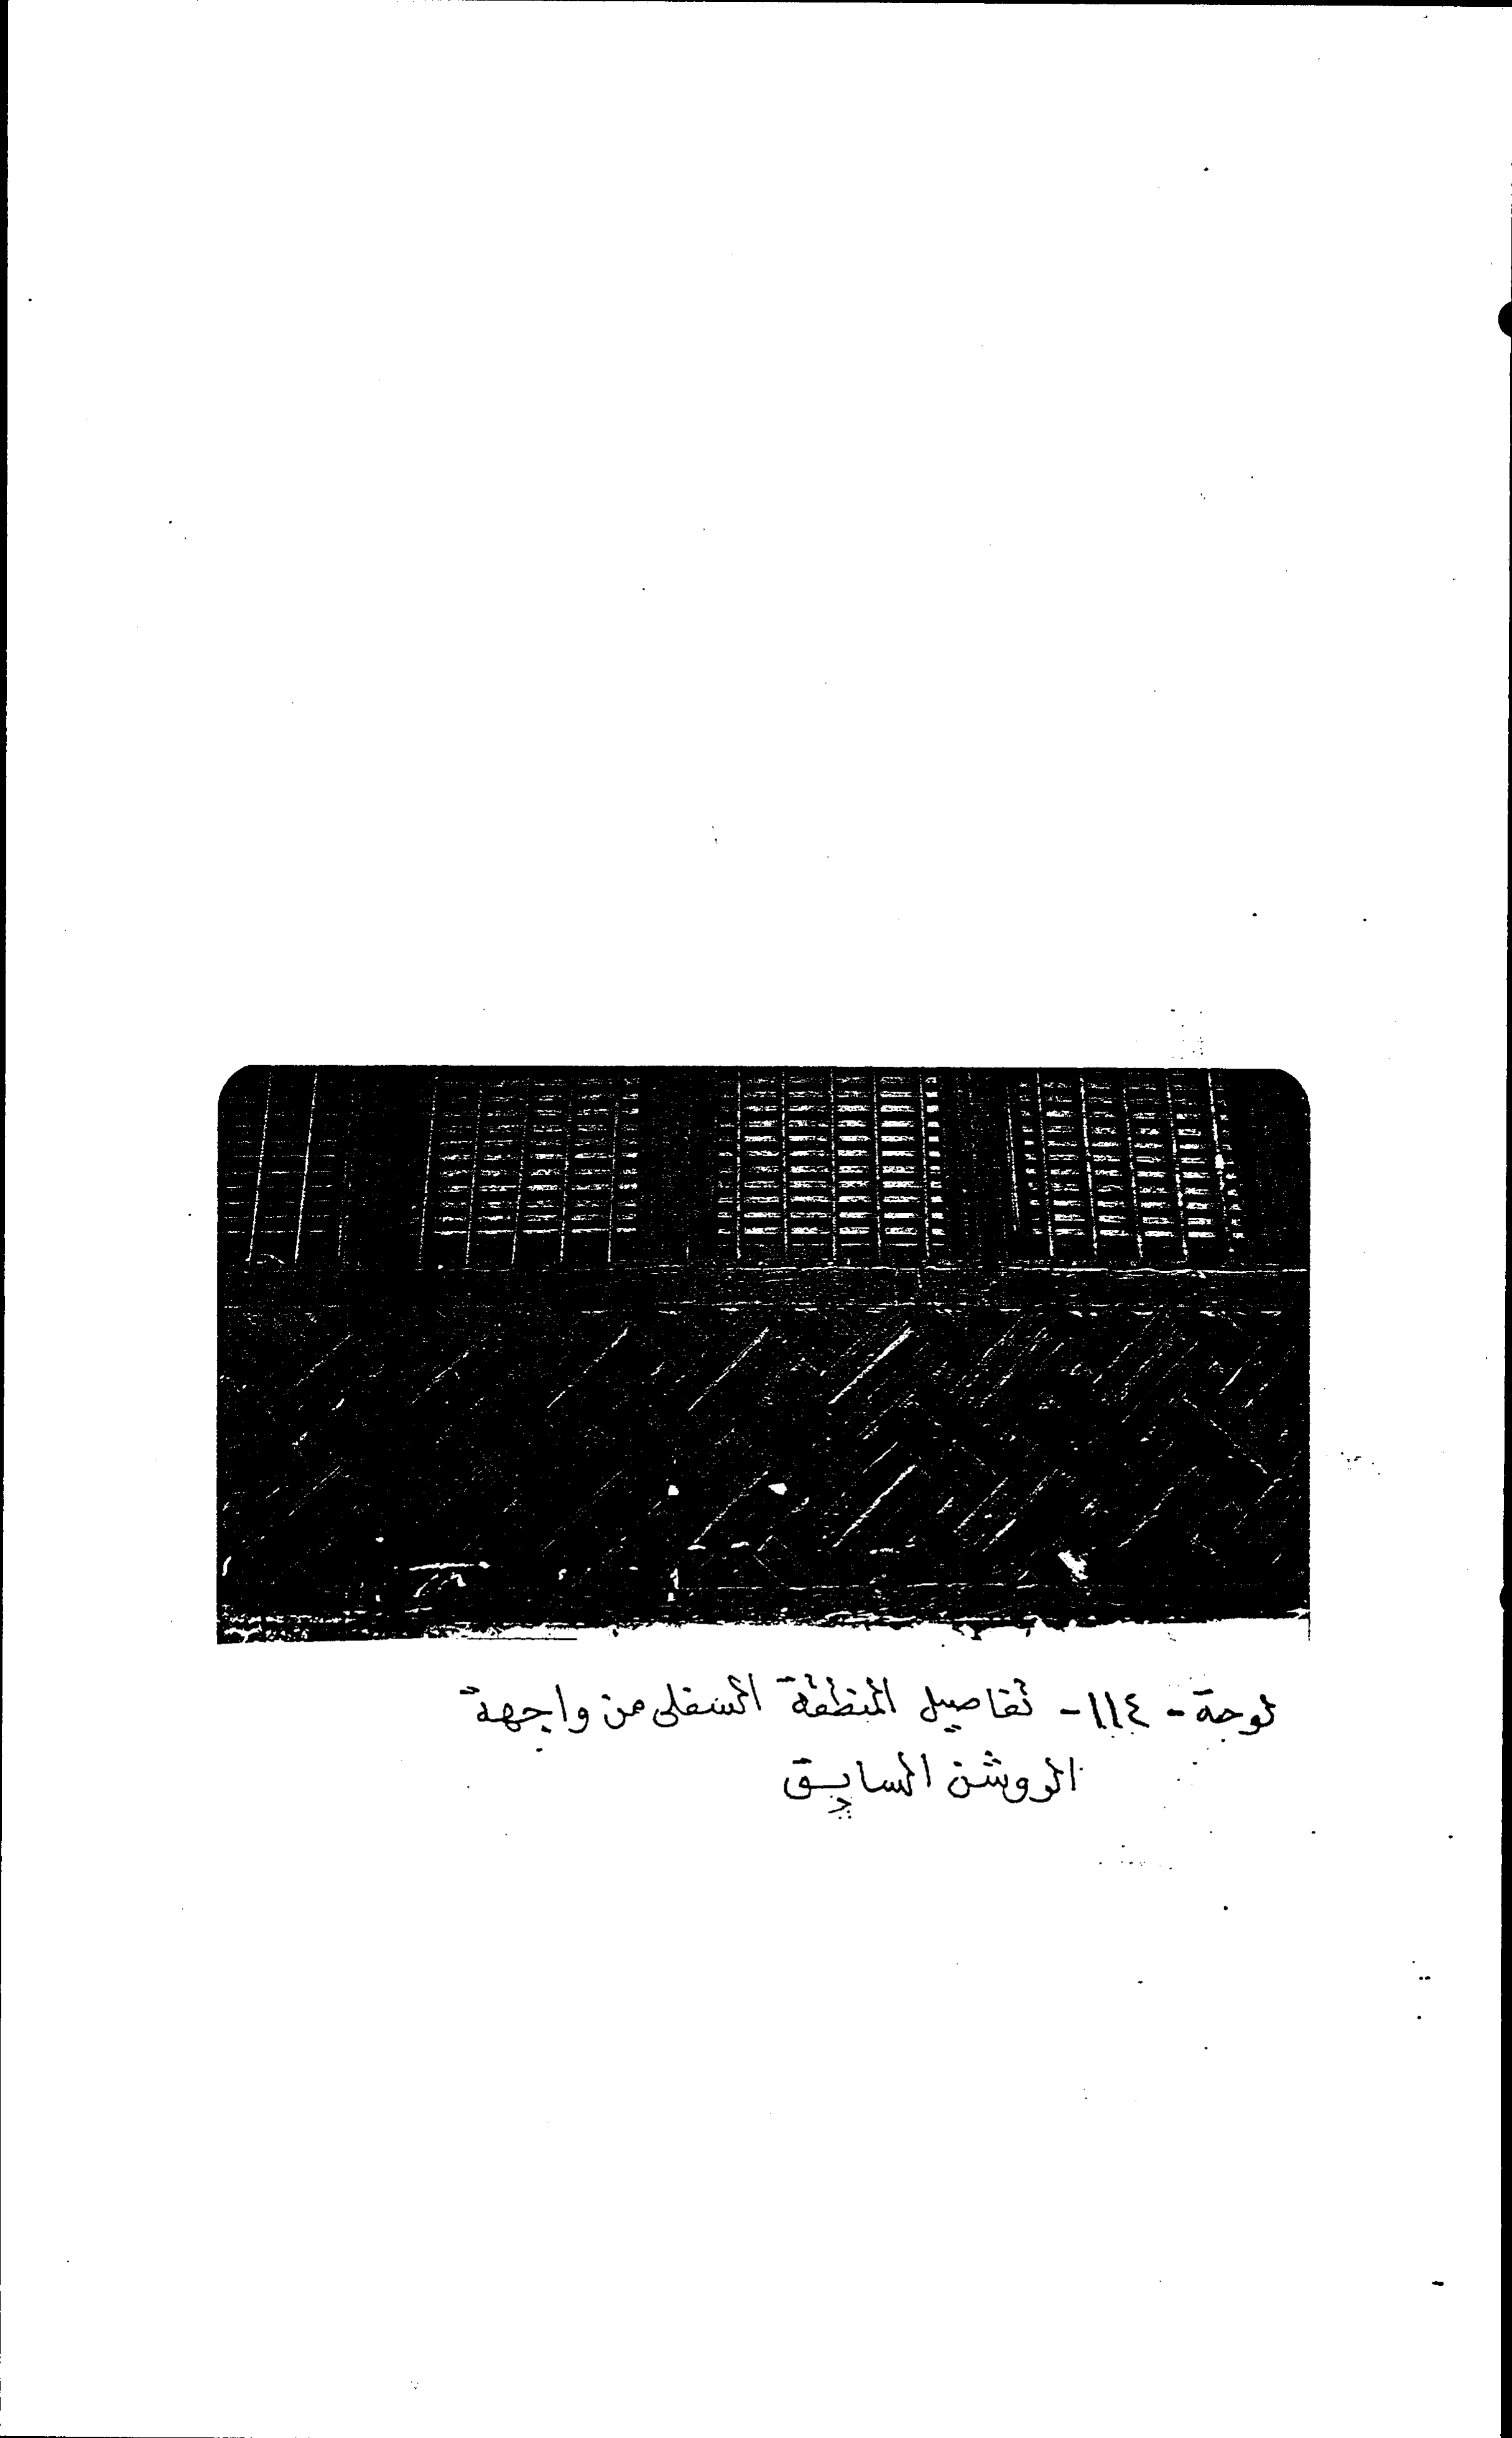 لوحة - ١١٤ - تفاصيل المنطقة السفلى من واجهة
الروشن السابق